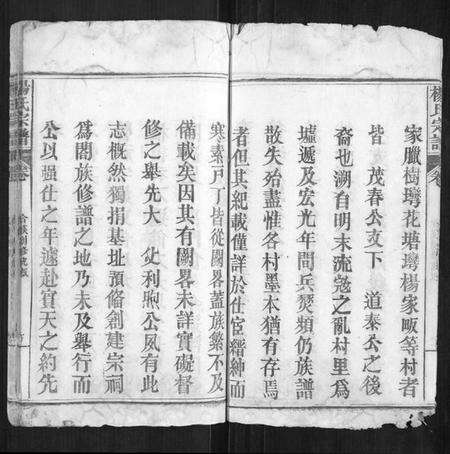 楊氏宗譜 卷
家臘樹塆花塘塆楊家畈等村者
皆 茂春公支下 道泰公之後
裔也溯自明末流寇之亂村里爲
墟遞及宏光年間兵燹頻仍族譜
散失殆盡惟各村墨本猶有存焉
者但其紀載僅詳於仕宦縉紳而
寒素戸丁皆從闕畧蓋族繁不及
備載矣因其有闕畧未詳實礙督
修之舉先大 父利煦公夙有此
志慨然獨捐基址預備創建宗祠
爲闔族修譜之地乃未及舉行而
公以强仕之年遽赴賓天之約先
楊氏宗譜 卷